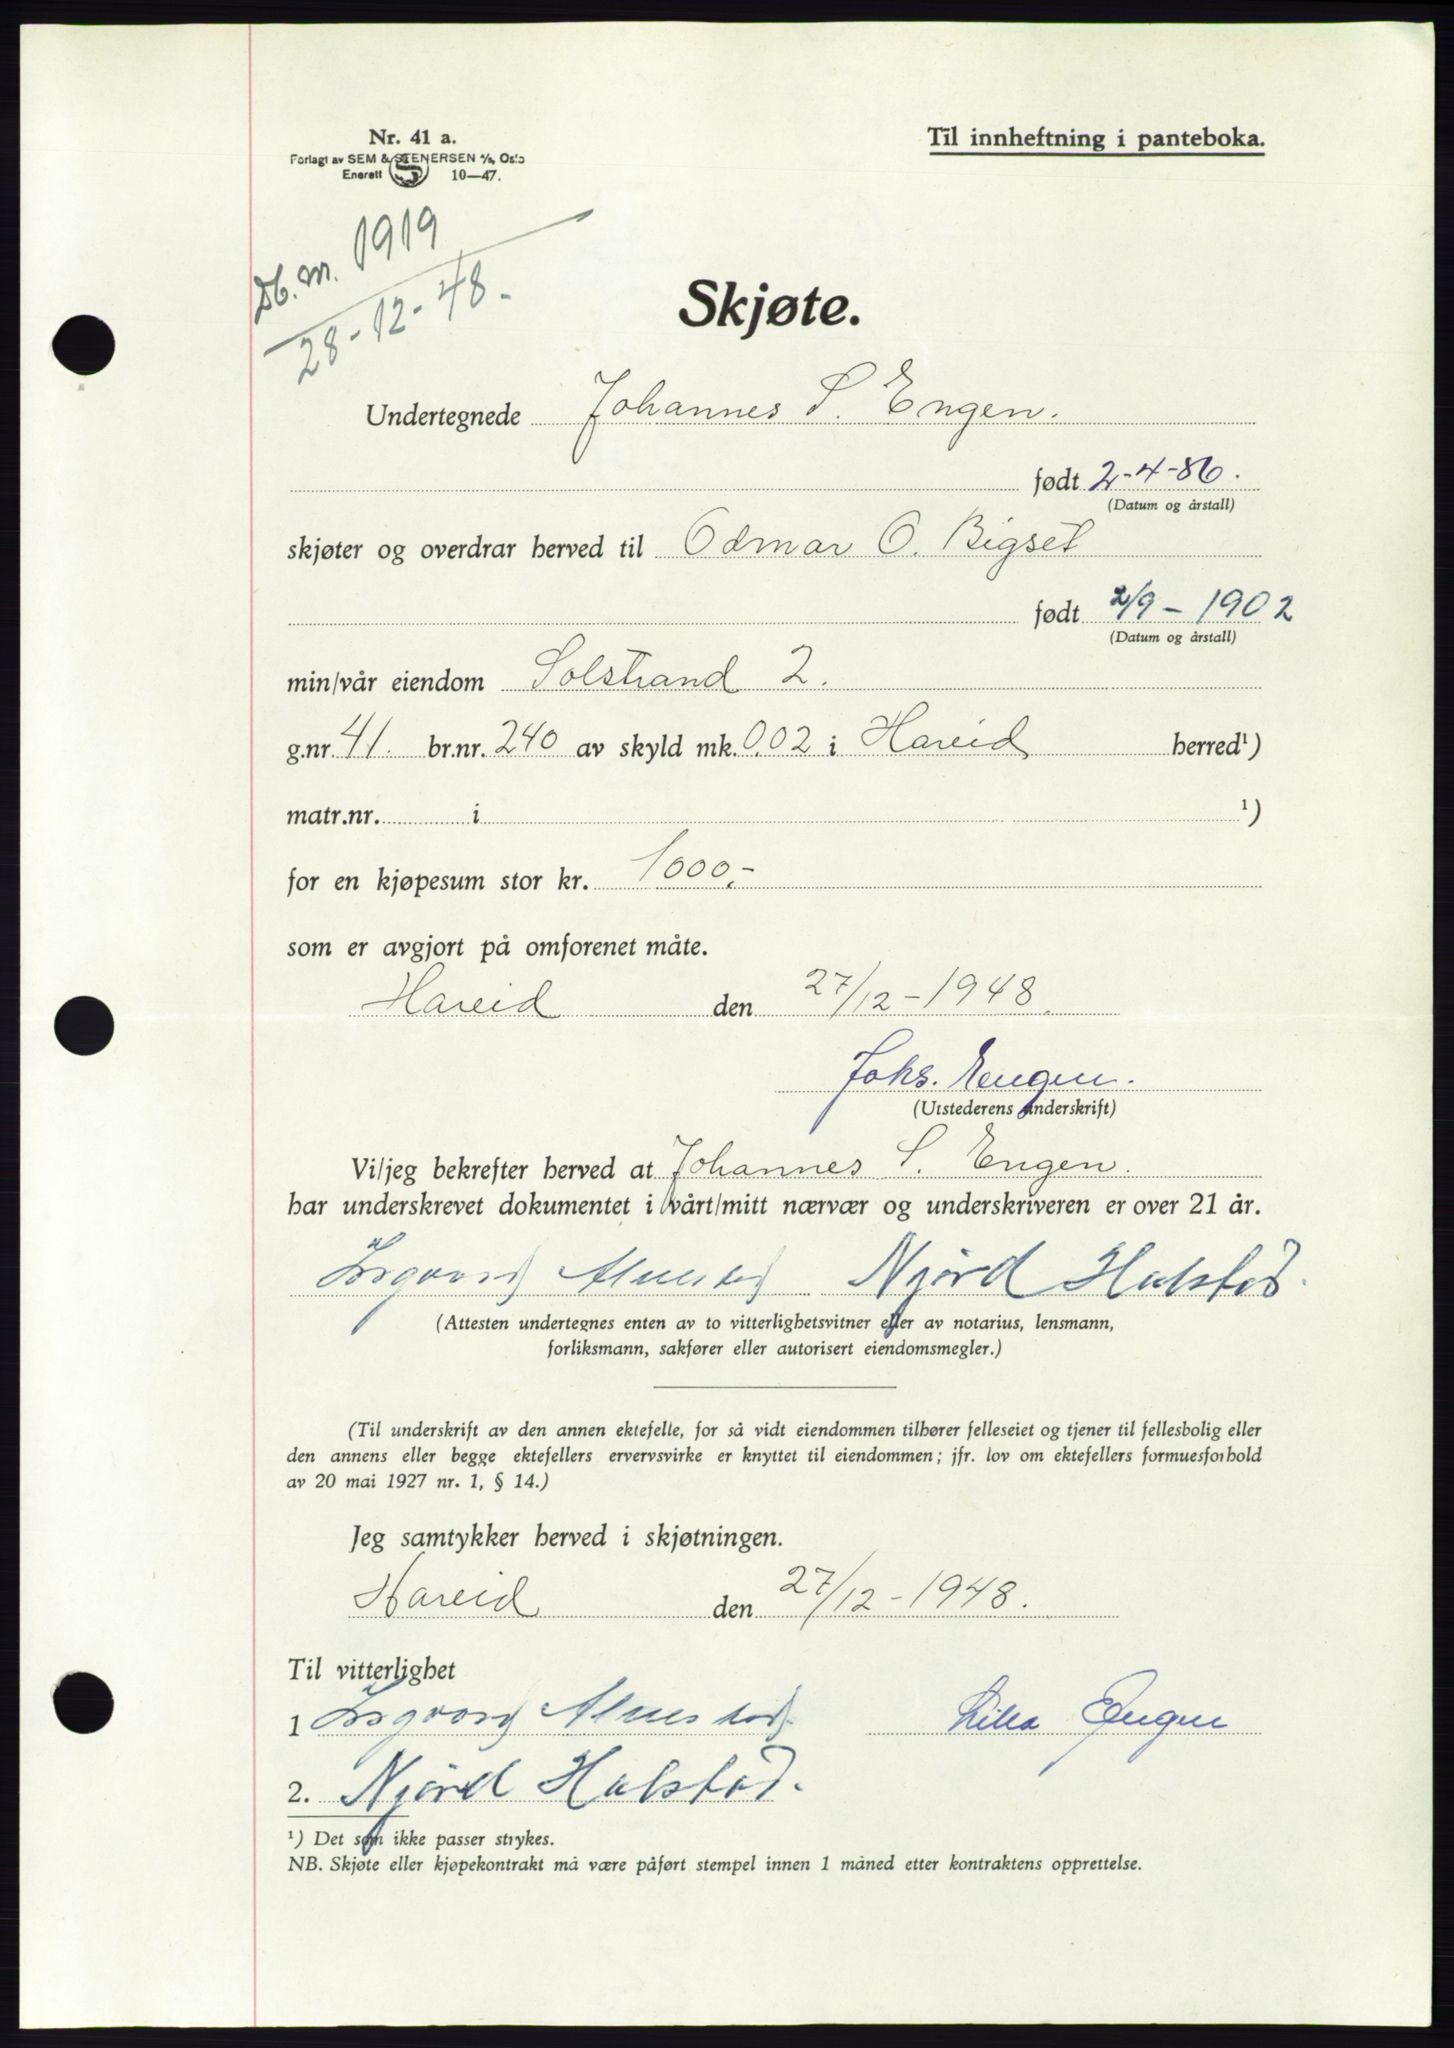 Nr. 41 a.
Forlagt av SEM & STENERSEN A/S, Oslo
Enerett 10—47.
Til innheftning i panteboka.
Db. nr. 1919
28-12-48.
Skjøte.
Undertegnede Johannes S. Engen.
født 2-4-86.
(Datum og årstall)
skjøter og overdrar herved til Odmar O. Bigset
født 2/9 - 1902
(Datum og årstall)
min/vår eiendom Solstrand 2.
g.nr. 41. br.nr. 240 av skyld mk. 0,02 i Hareid herred¹)
matr.nr. i ¹)
for en kjøpesum stor kr. 1000,-
som er avgjort på omforenet måte.
Hareid den 27/12-1948.
Johs. Engen.
(Utstederens underskrift)
Vi/jeg bekrefter herved at Johannes S. Engen.
har underskrevet dokumentet i vårt/mitt nærvær og underskriveren er over 21 år.
Njörd Halstad.
(Attesten undertegnes enten av to vitterlighetsvitner eller av notarius, lensmann,
forliksmann, sakfører eller autorisert eiendomsmegler.)
(Til underskrift av den annen ektefelle, for så vidt eiendommen tilhører felleseiet og tjener til fellesbolig eller
den annens eller begge ektefellers ervervsvirke er knyttet til eiendommen; jfr. lov om ektefellers formuesforhold
av 20 mai 1927 nr. 1, § 14.)
Jeg samtykker herved i skjøtningen.
Hareid den 27/12-1948.
Til vitterlighet
1 Engen
2. Njörd Halstad.
¹) Det som ikke passer strykes.
NB. Skjøte eller kjøpekontrakt må være påført stempel innen 1 måned etter kontraktens opprettelse.